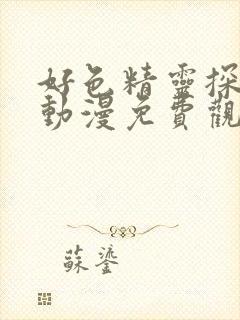 好色精靈探
動漫免費觀
蘇鎏